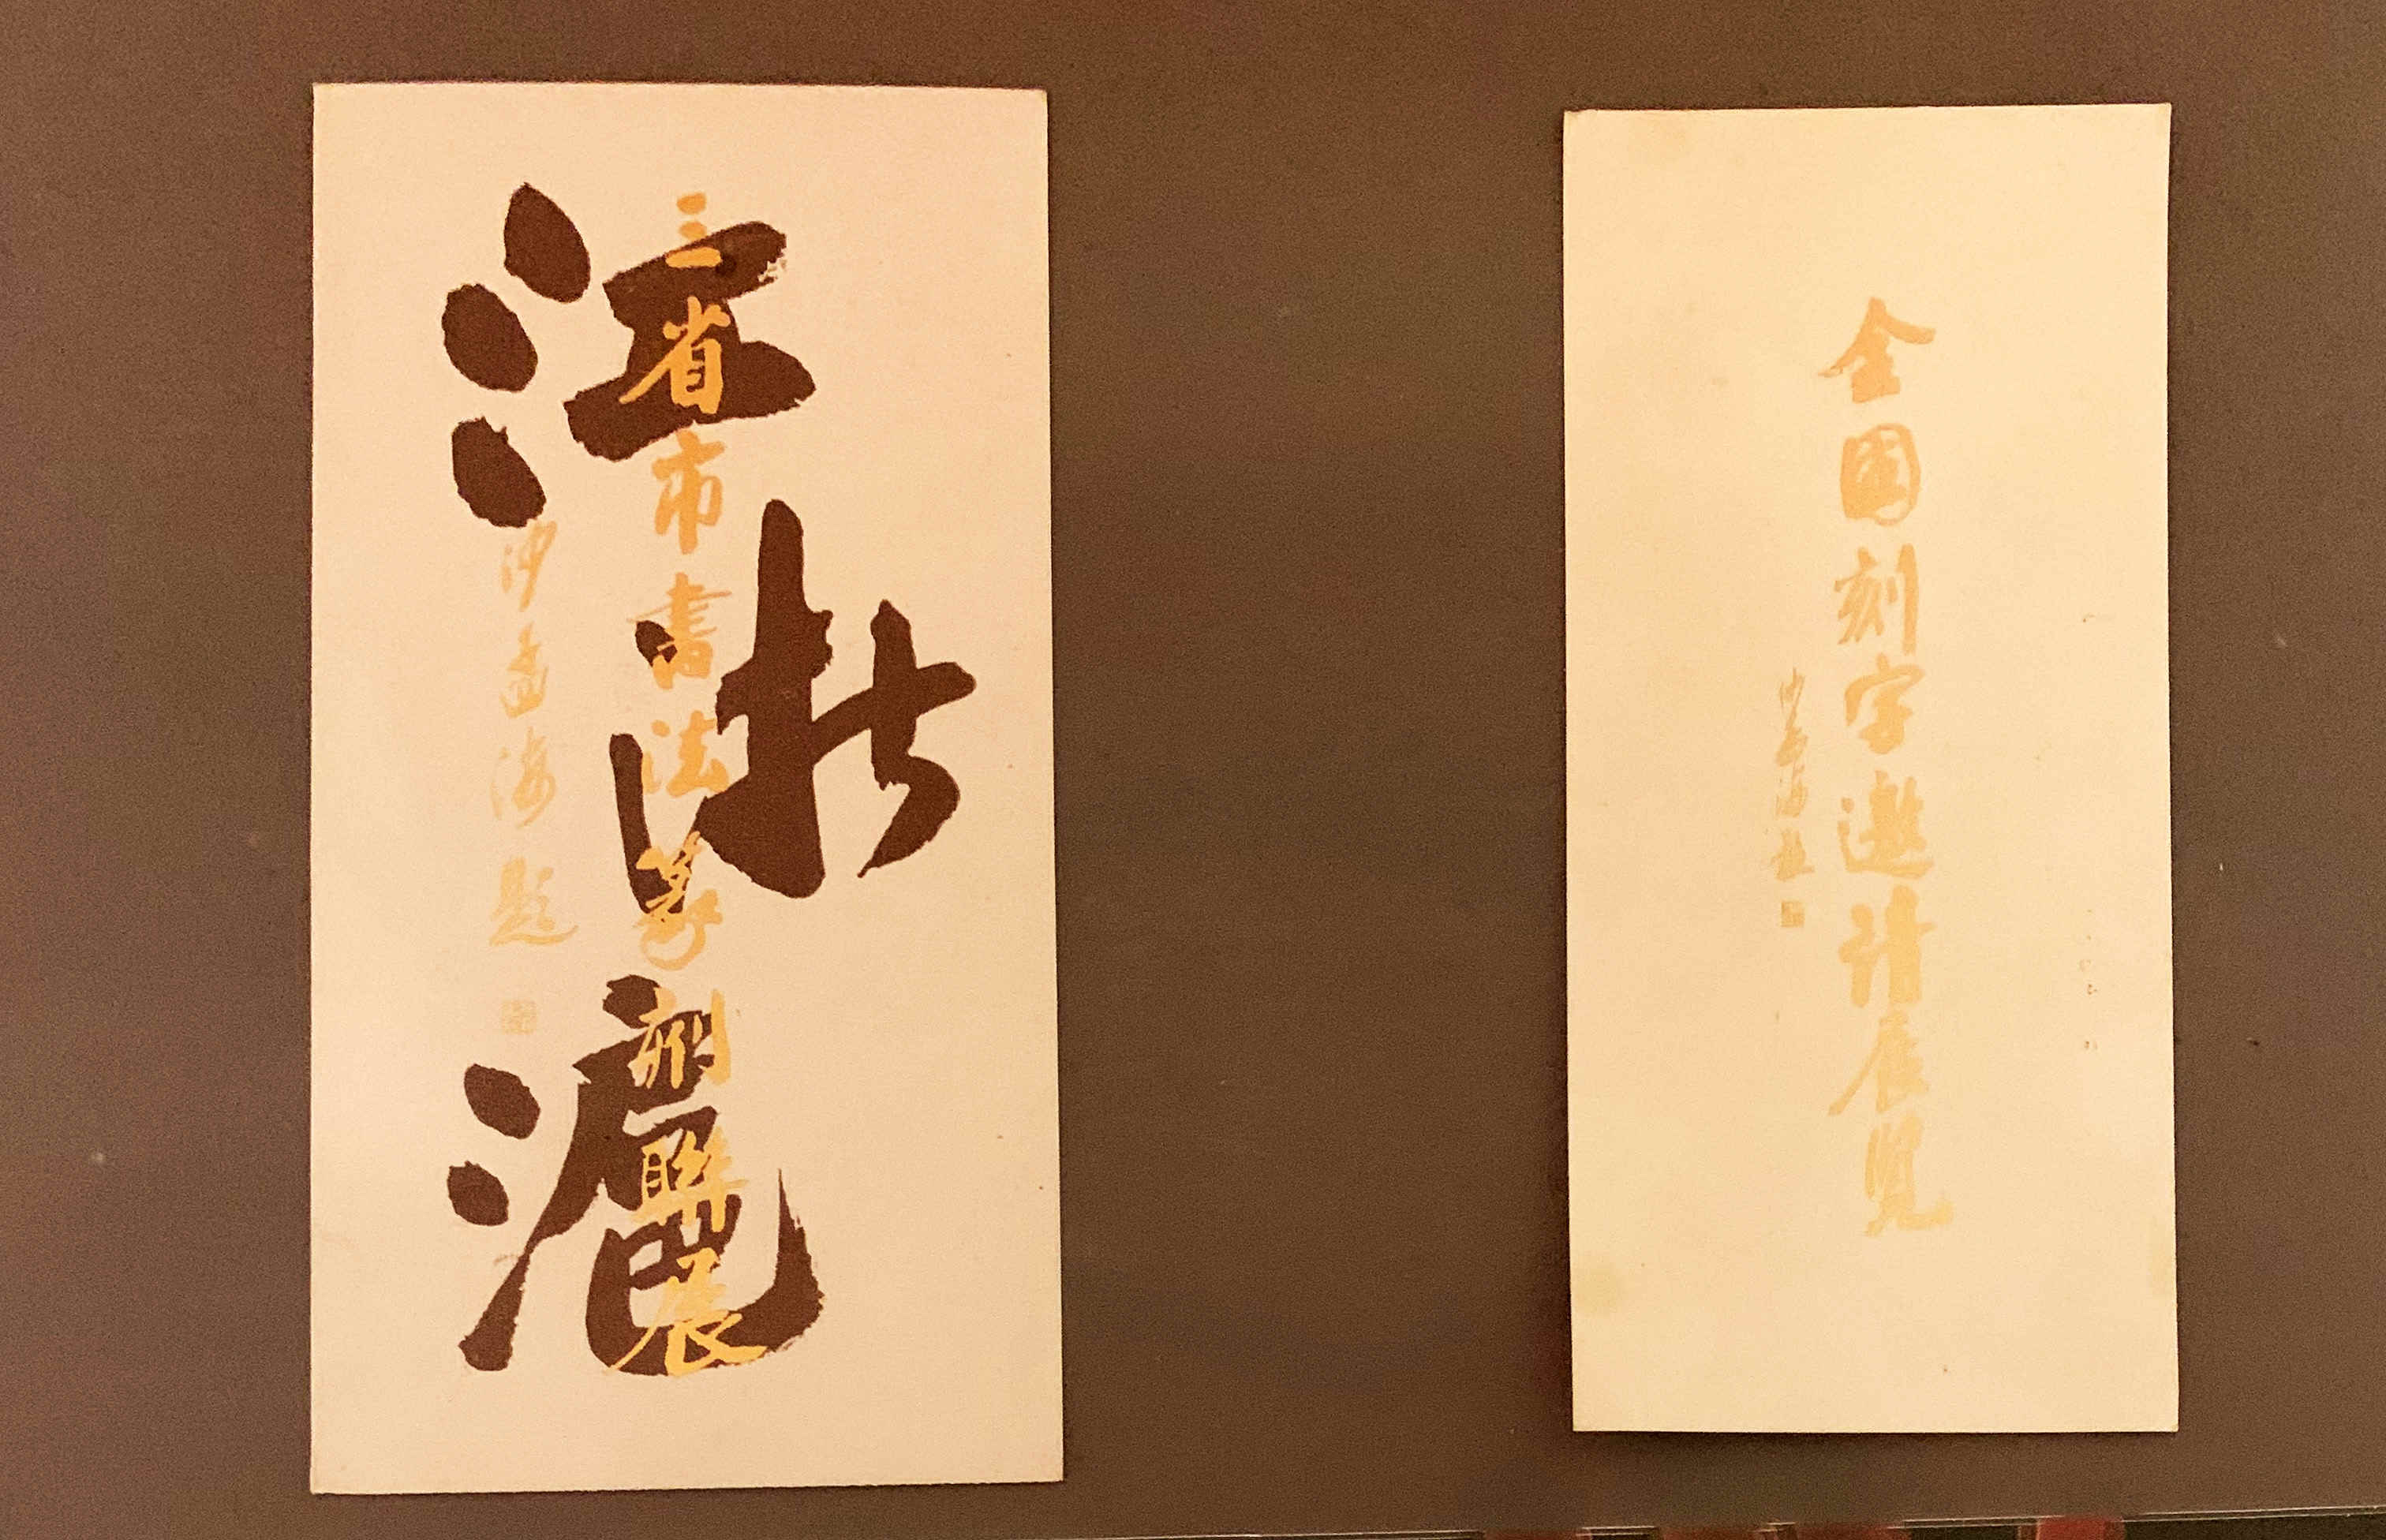 江浙滬
三省市書法篆刻聯展
沙孟海題
全国刻字邀请展览
沙孟海題